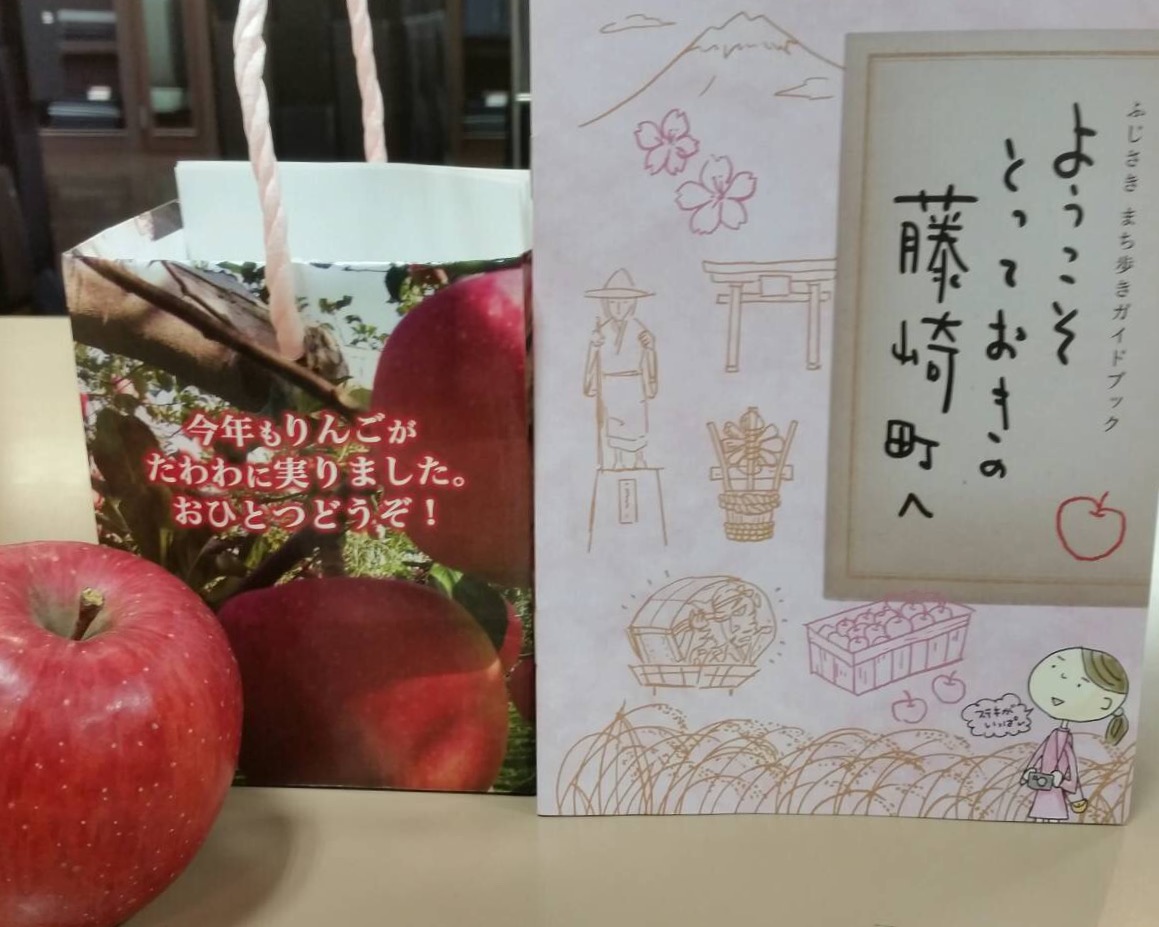 今年もりんごが
たわわに実りました。
おひとつどうぞ！
ふじさき まち歩きガイドブック
ようこそ
とっておきの
藤崎町へ
ステキが
いっぱい